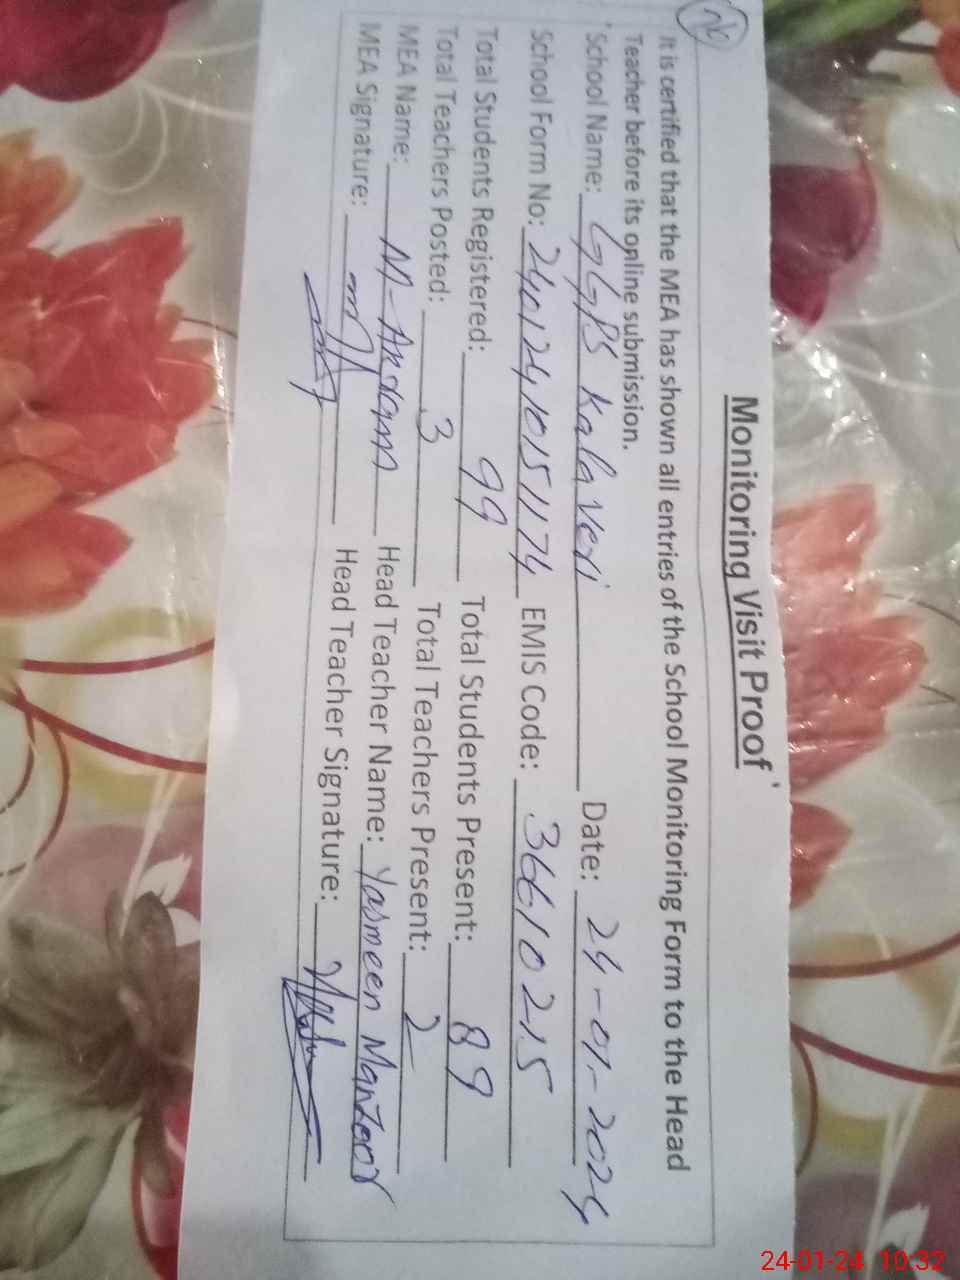 Monitoring Visit Proof
It is certified that the MEA has shown all entries of the School Monitoring Form to the Head
Teacher before its online submission.
School Name: GGPS Kala Veri Date: 24-01-2024
School Form No: 2401241051174 EMIS Code: 36610215
Total Students Registered: 99 Total Students Present: 89
Total Teachers Posted: 3 Total Teachers Present: 2
MEA Name: M-Anjam Head Teacher Name: Yasmeen Manzoor
MEA Signature: Head Teacher Signature:
24-01-24 10:32